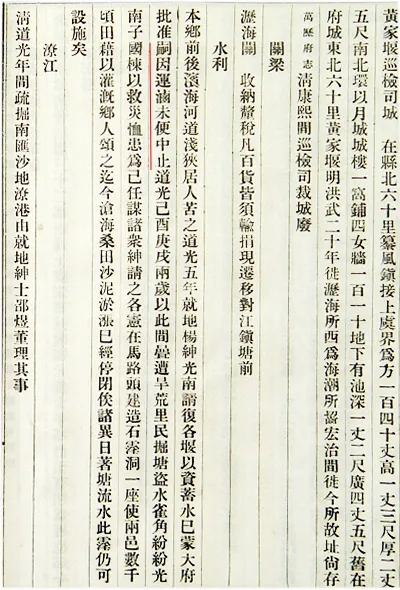 黃家堰巡檢司城　在縣北六十里纂風鎭接上虞界爲方一百四十丈高一丈三尺厚二丈
五尺南北環以月城城樓一窩鋪四女牆一百一十地下有池深一丈二尺廣四丈五尺舊在
府城東北六十里黃家堰明洪武二十年徙瀝海所西爲海潮所齧宏治間徙今所故址尙存
萬歷府志淸康熙間巡檢司裁城廢
關梁
瀝海關　收納釐稅凡百貨皆須輸捐現遷移對江鎭塘前
水利
本鄕前後濱海河道淺狹居人苦之道光五年就地楊紳光南請復各堰以資蓄水已蒙大府
批准嗣因運鹵未便中止道光己酉庚戌兩歲以此間疊遭旱荒里民掘塘盜水雀角紛紛光
南子國棟以救災恤患爲己任謀諸衆紳請之各憲在馬路頭建造石霪洞一座使兩邑數千
頃田藉以灌漑鄕人頌之迄今滄海桑田沙泥淤漲已經停閉俟諸異日著塘流水此霪仍可
設施矣
潦江
淸道光年間疏掘南匯沙地潦港由就地紳士邵煜董理其事